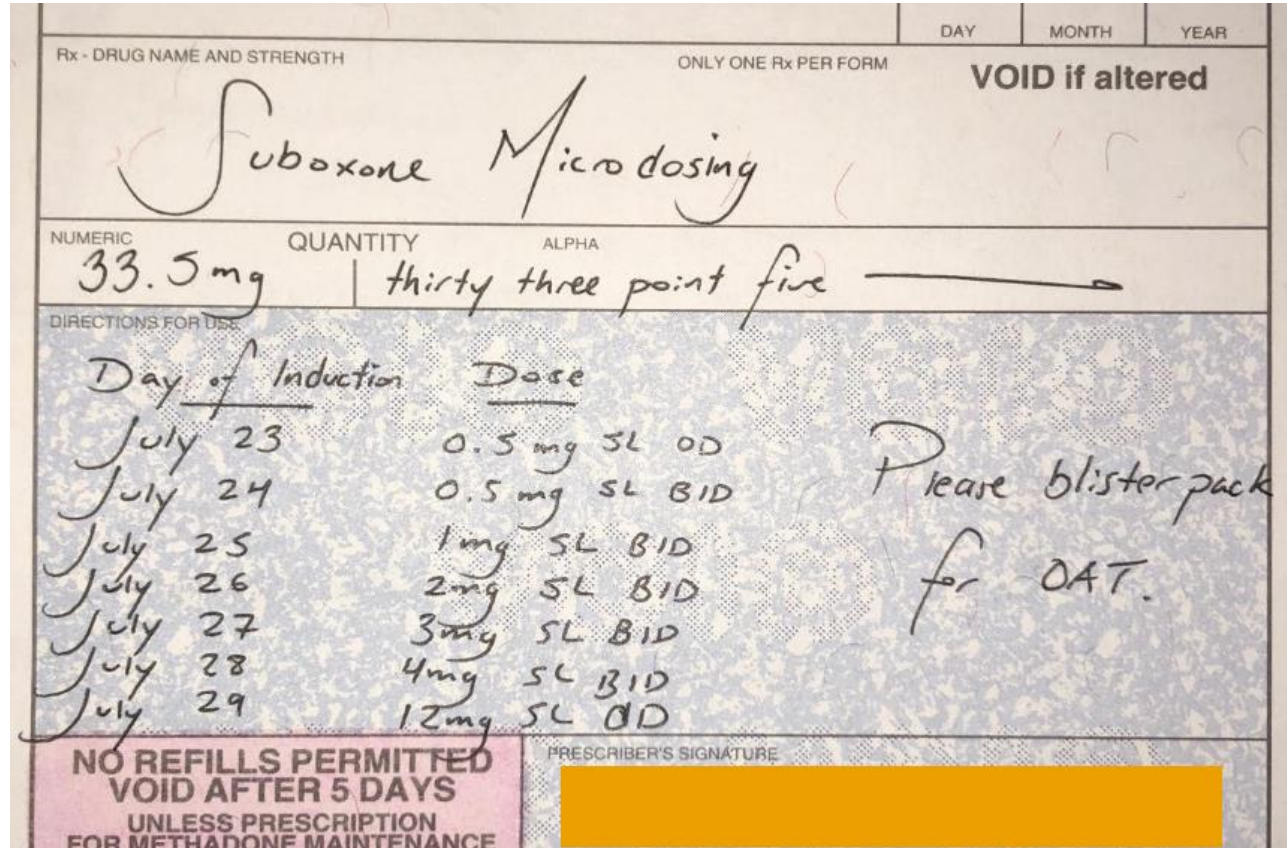 DAY MONTH YEAR
Rx - DRUG NAME AND STRENGTH ONLY ONE Rx PER FORM VOID if altered
Suboxone Microdosing
NUMERIC QUANTITY ALPHA
33.5 mg thirty three point five
DIRECTIONS FOR USE
Day of Induction Dose
July 23 0.5 mg SL OD
July 24 0.5 mg SL BID
July 25 1mg SL BID
July 26 2mg SL BID
July 27 3mg SL BID
July 28 4mg SL BID
July 29 12mg SL OD
Please blister pack
for OAT.
NO REFILLS PERMITTED
VOID AFTER 5 DAYS
UNLESS PRESCRIPTION
FOR METHADONE MAINTENANCE
PRESCRIBER'S SIGNATURE